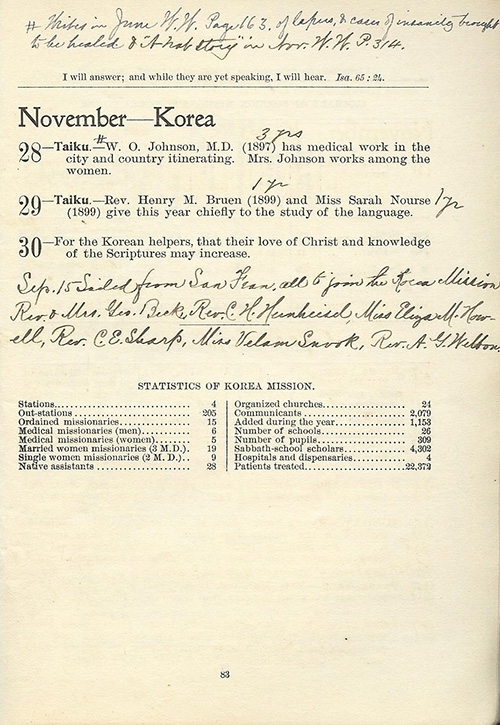 # Writes in June W. W. Page 163. of lepers, & cases of insanity brought
to be healed & "A hat story" in Nov. W. W. P. 314.
I will answer; and while they are yet speaking, I will hear. Isa. 65 : 24.
November—Korea
3 yrs
28—Taiku.—#W. O. Johnson, M.D. (1897) has medical work in the
city and country itinerating. Mrs. Johnson works among the
women.
1 yr
29—Taiku.—Rev. Henry M. Bruen (1899) and Miss Sarah Nourse 1 yr
(1899) give this year chiefly to the study of the language.
30—For the Korean helpers, that their love of Christ and knowledge
of the Scriptures may increase.
Sep. 15 Sailed from San Fran. all to join the Korea Mission
Rev. & Mrs. Geo. Beck, Rev. C. H. Miss Eliza M. How-
ell, Rev. C. E. Sharp, Miss Velam Snook, Rev. A. G. Welbon.
STATISTICS OF KOREA MISSION.
Stations 4
Out-stations 205
Ordained missionaries 15
Medical missionaries (men) 6
Medical missionaries (women) 5
Married women missionaries (3 M.D.) 19
Single women missionaries (2 M. D.) 9
Native assistants 28
Organized churches 24
Communicants 2,079
Added during the year 1,153
Number of schools 26
Number of pupils 309
Sabbath-school scholars 4,302
Hospitals and dispensaries 4
Patients treated 22,372
83